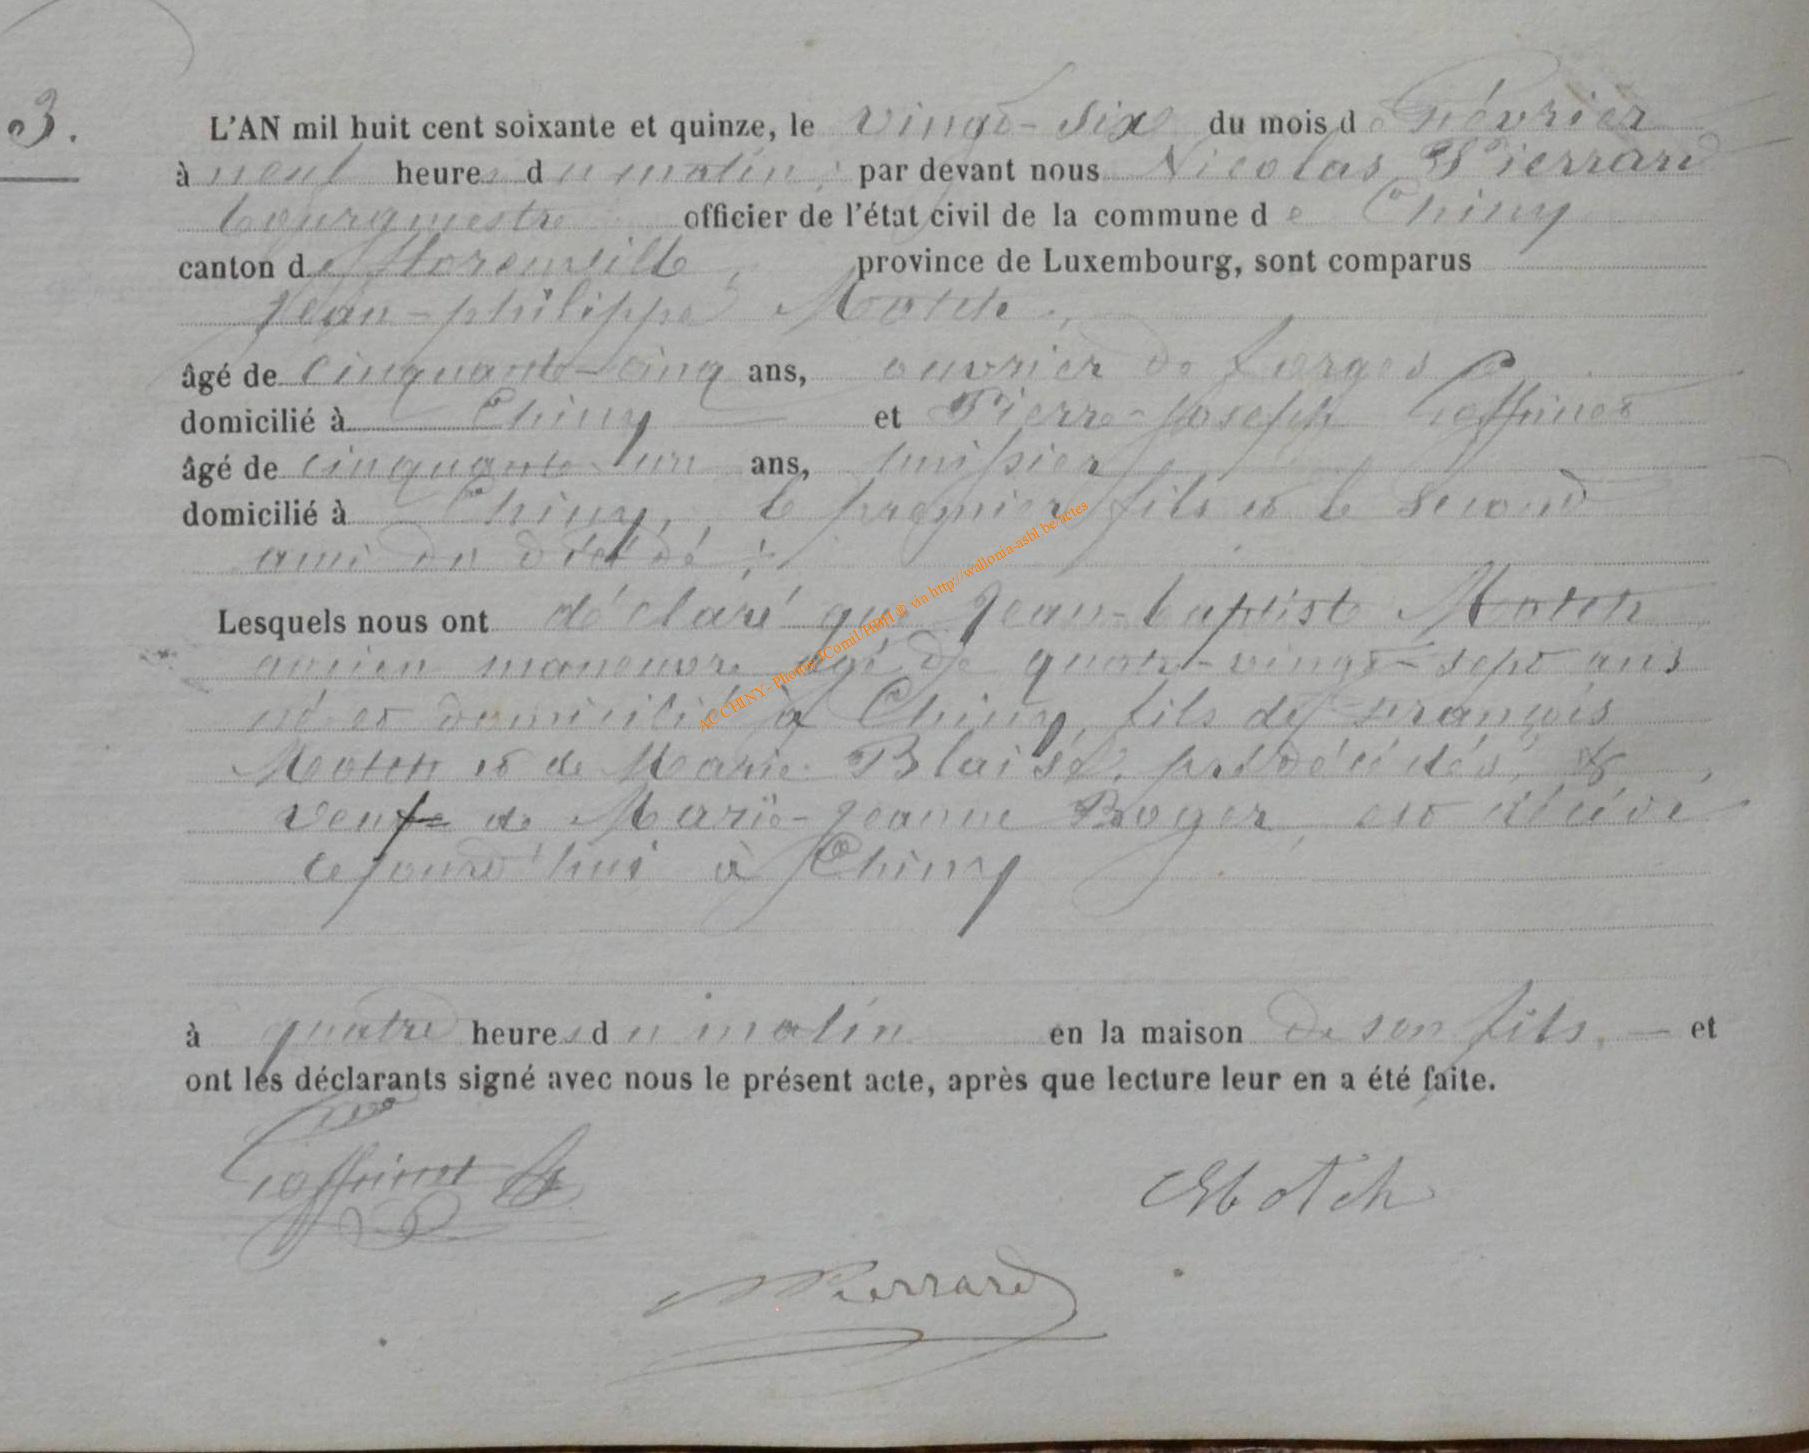 3.
L'AN mil huit cent soixante et quinze, le vingt-six du mois de février
à neuf heures du matin, par devant nous Nicolas Pierrard
bourgmestre officier de l'état civil de la commune de Chiny
canton de Florenville, province de Luxembourg, sont comparus
Jean-philippe Motch,
âgé de cinquante-cinq ans, ouvrier de forges
domicilié à Chiny et Pierre-Joseph Goffinet
âgé de cinquante-un ans, huissier
domicilié à Chiny, le premier fils et le second
ami du décédé ;
Lesquels nous ont déclaré que Jean-baptiste Motch
ancien manœuvre âgé de quatre-vingt-sept ans
né et domicilié à Chiny, fils de François
Motch et de Marie Blaise, prédécédés, &
veuf de Marie-Jeanne Roger, est décédé
cejourd'hui à Chiny
à quatre heures du matin en la maison de son fils. — et
ont les déclarants signé avec nous le présent acte, après que lecture leur en a été faite.
Goffinet Motch
Pierrard
AC CHINY - Photos JComil/HBH © via http://wallonia-asbl.be/actes